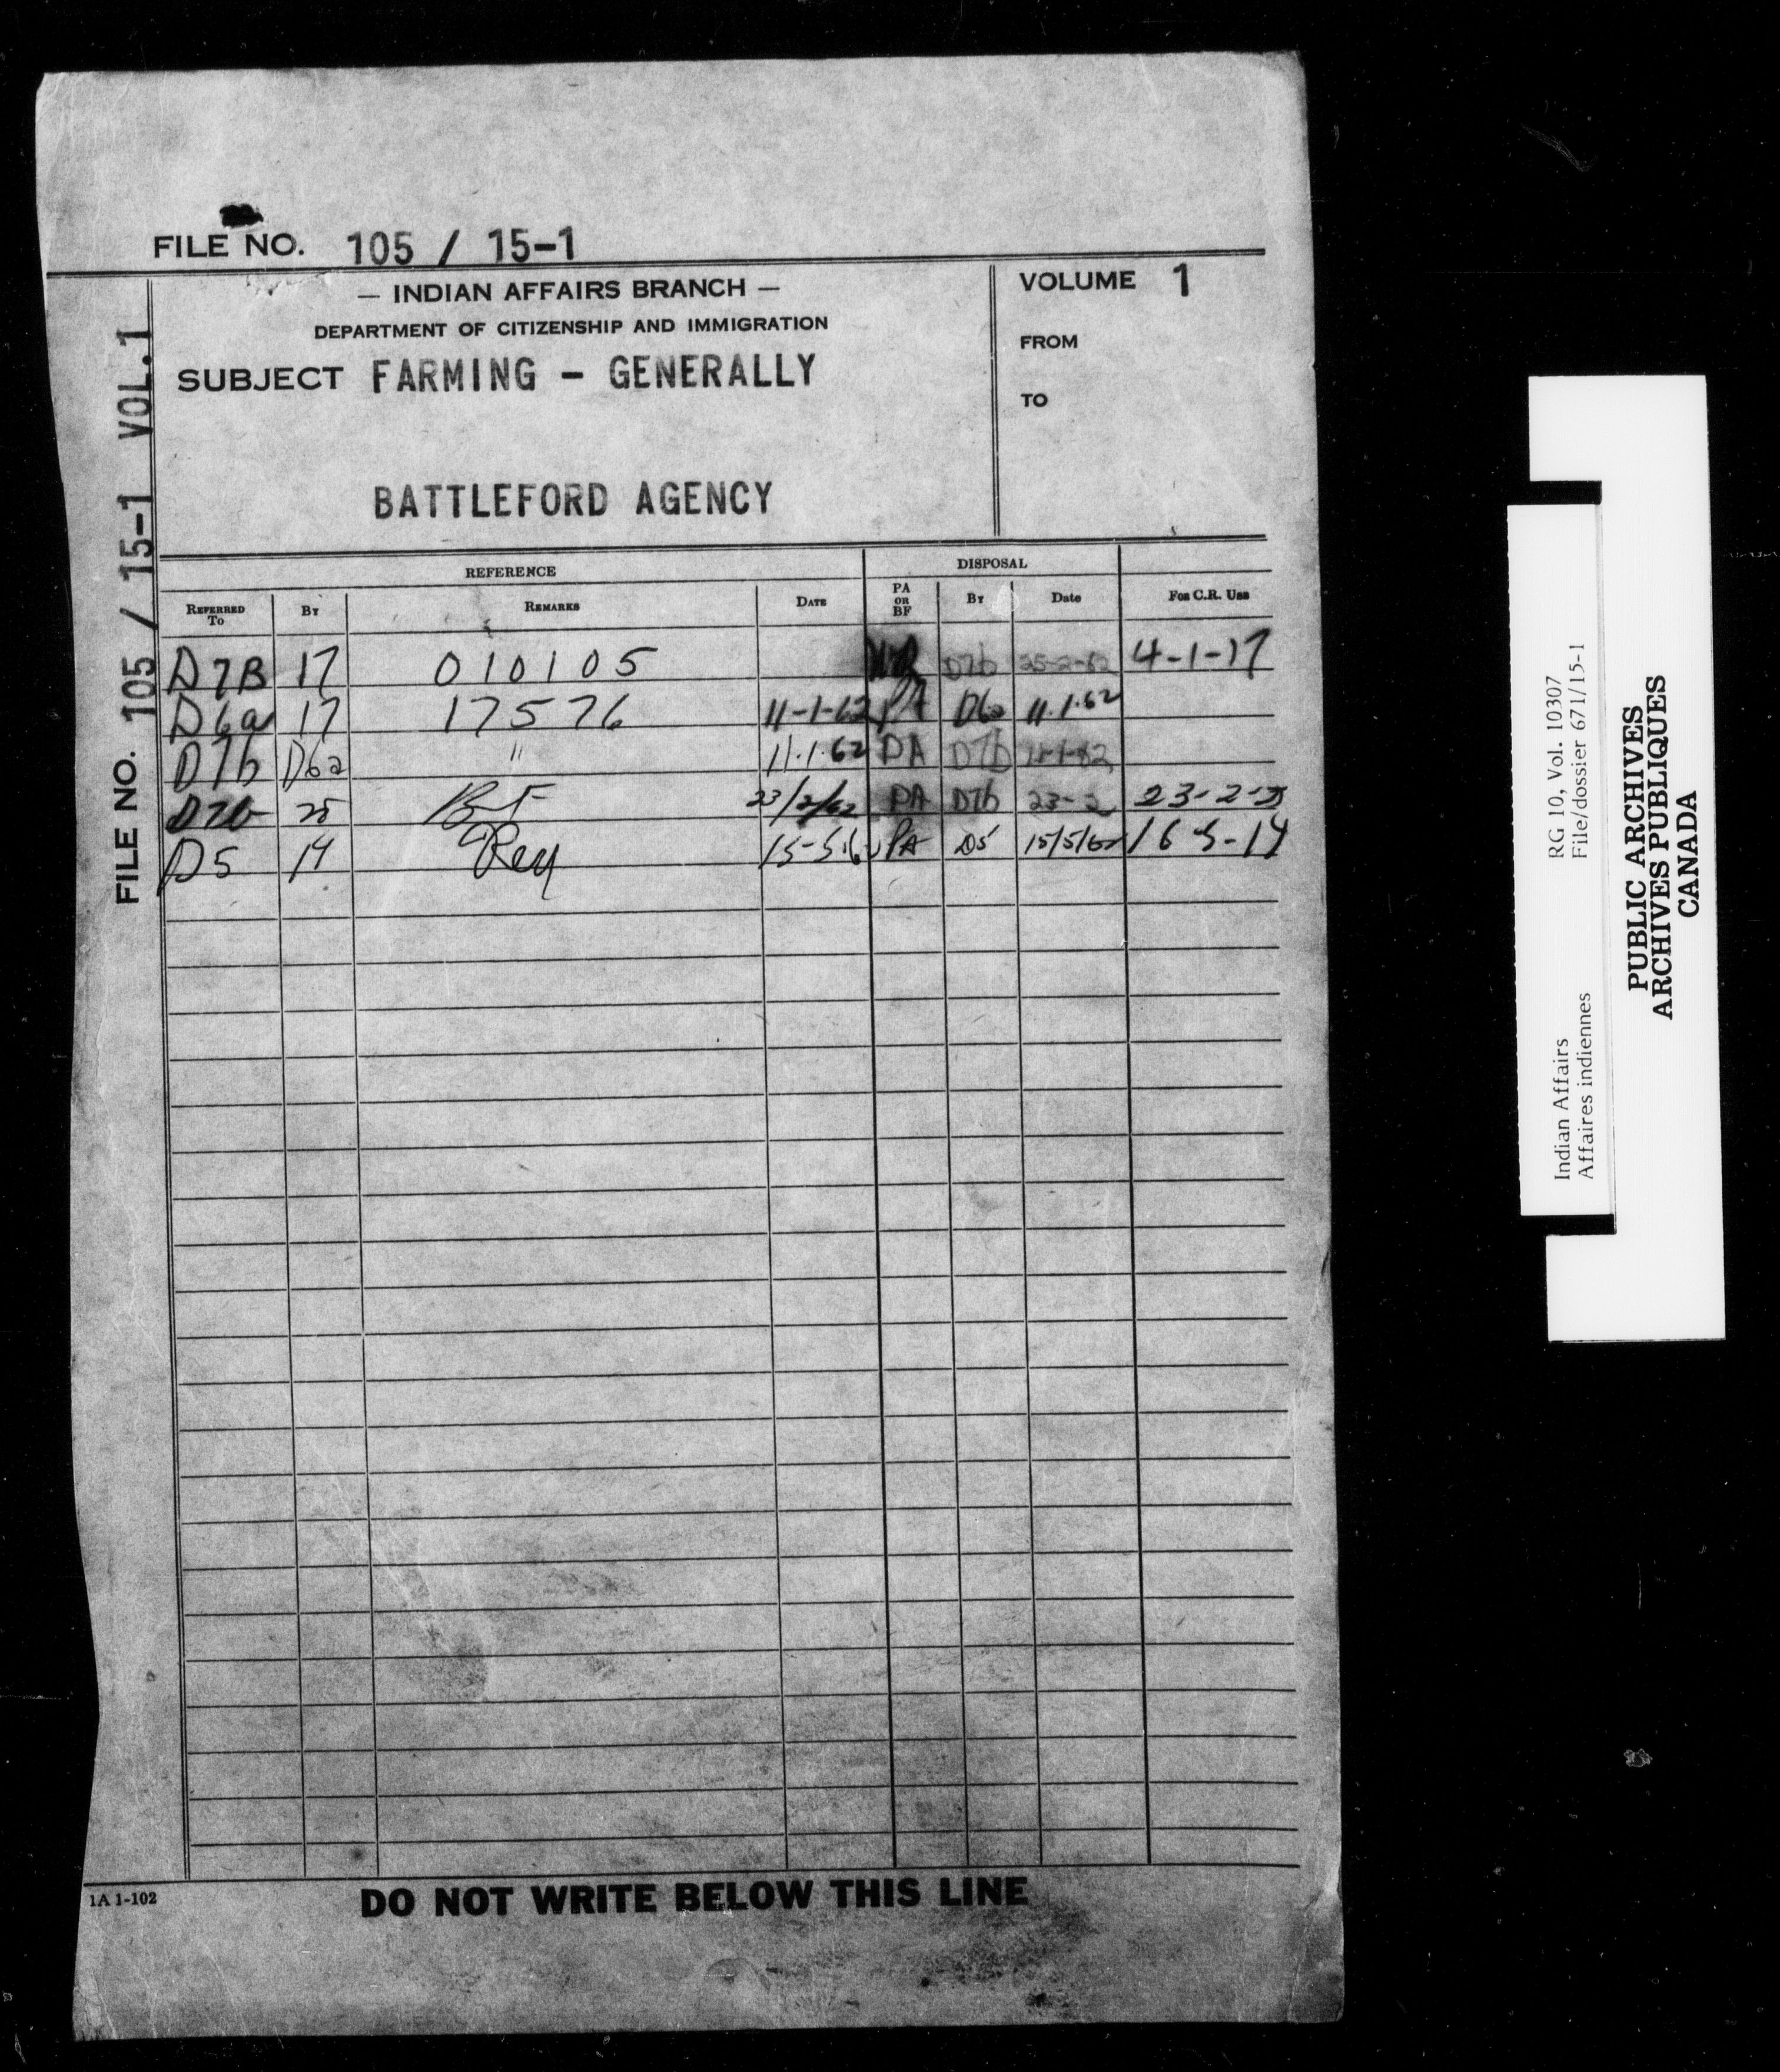 FILE NO. 105 / 15-1
— INDIAN AFFAIRS BRANCH —
DEPARTMENT OF CITIZENSHIP AND IMMIGRATION
SUBJECT FARMING - GENERALLY
BATTLEFORD AGENCY
VOLUME 1
FROM
TO
FILE NO. 105 / 15-1 VOL.1
REFERENCE DISPOSAL
REFERRED TO BY REMARKS DATE PA OR BF BY Date FOR C.R. USE
D7B 17 010105 D7b 25-2-62 4-1-17
D6a 17 17576 11-1-62 PA D6a 11.1.62
D7b D6a " 11.1.62 PA D7b 11-1-62
D7b 25 BF 23/2/62 PA D7b 23-2 23-2-25
D5 14 Req 15-5-62 PA D5 15/5/62 16-5-14
1A 1-102
DO NOT WRITE BELOW THIS LINE
Indian Affairs RG 10, Vol. 10307
Affaires indiennes File/dossier 671/15-1
PUBLIC ARCHIVES
ARCHIVES PUBLIQUES
CANADA